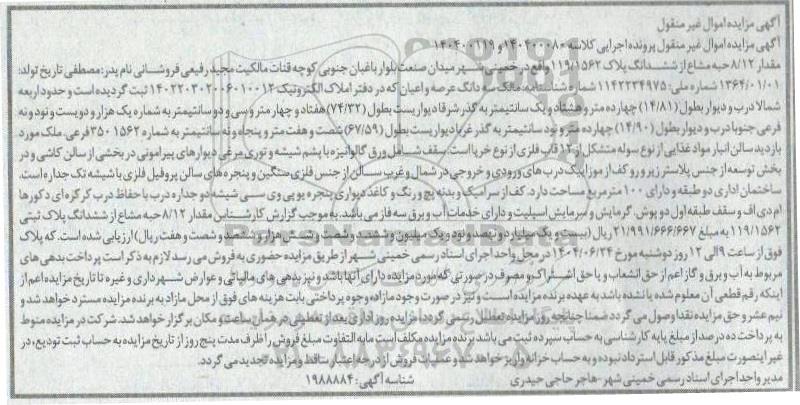 آگهی مزایده اموال غیر منقول
آگهی مزایده اموال غیر منقول پرونده اجرایی کلاسه ۱۴۰۲۰۰۰۸۰ و ۱۴۰۴۰۰۱۱۹
مقدار ۸/۱۲ حبه مشاع از ششدانگ پلاک ۱۱۹/۱۵۶۲ واقع در خمینی شهر میدان صنعت بلوار باغبان جنوبی کوچه قنات مالکیت مجید رفیعی فروشانی نام پدر: مصطفی تاریخ تولد:
۱۳۶۴/۰۱/۰۱ شماره ملی: ۱۱۴۲۲۳۴۹۷۵ شماره شناسنامه: مالک سه دانگ عرصه و اعیان که در دفتر املاک الکترونیک ۱۴۰۲۲۰۳۰۲۰۰۶۰۱۰۰۱۲ ثبت گردیده است و حدود اربعه
شمالا درب و دیوار بطول (۱۴/۸۱) چهارده متر و هشتاد و یک سانتیمتر به گذر شرقا دیواریست بطول (۷۴/۳۲) هفتاد و چهار متر و سی و دو سانتیمتر به شماره یک هزار و دویست و نود و نه
فرعی جنوبا درب و دیوار بطول (۱۴/۹۰) چهارده متر و نود سانتیمتر به گذر غربا دیواریست بطول (۶۷/۵۹) شصت و هفت متر و پنجاه و نه سانتیمتر به شماره ۱۵۶۲ ۳۵۰ فرعی. ملک مورد
بازدید سالن انبار مواد غذایی از نوع سوله متشکل از ۱۲ قاب فلزی از نوع خرپا است. سقف شامل ورق گالوانیزه با پشم شیشه و توری مرغی دیوارهای پیرامونی در بخشی از سالن کاشی و در
بخش توسعه از جنس پلاستر زیر و رو کف از موزاییک درب های ورودی و خروجی در شمال و غرب سالن از جنس فلزی سنگین و پنجره های سالن پروفیل فلزی با شیشه تک جداره است.
ساختمان اداری دو طبقه و دارای ۱۰۰ متر مربع مساحت دارد. کف از سرامیک و بدنه گچ و رنگ و کاغذ دیواری پنجره یو پی وی سی شیشه دو جداره درب با حفاظ درب کرکره ای دکورها
ام دی اف و سقف طبقه اول دو پوش. گرمایش و سرمایش اسپلیت و دارای خدمات آب و برق سه فاز می باشد. به موجب گزارش کارشناس مقدار ۸/۱۲ حبه مشاع از ششدانگ پلاک ثبتی
۱۱۹/۱۵۶۲ به مبلغ ۲۱/۹۹۱/۶۶۶/۶۶۷ ریال (بیست و یک میلیارد و نهصد و نود و یک میلیون و ششصد و شصت و شش هزار و ششصد و شصت و هفت ریال) ارزیابی شده است. که پلاک
فوق از ساعت ۹ الی ۱۲ روز دوشنبه مورخ ۱۴۰۴/۰۶/۲۴ در محل واحد اجرای اسناد رسمی خمینی شهر از طریق مزایده حضوری به فروش می رسد لازم به ذکر است پرداخت بدهی های
مربوط به آب و برق و گاز اعم از حق انشعاب و یا حق اشتراک و مصرف در صورتی که مورد مزایده دارای آنها باشد و نیز بدهی های مالیاتی و عوارض شهرداری و غیره تا تاریخ مزایده اعم از
اینکه رقم قطعی آن معلوم شده یا نشده باشد به عهده برنده مزایده است و نیز در صورت وجود مازاد وجوه پرداختی بابت هزینه های فوق از محل مازاد به برنده مزایده مسترد خواهد شد و
نیم عشر و حق مزایده نقدا وصول می گردد ضمنا چنانچه روز مزایده تعطیل رسمی گردد، مزایده روز اداری بعد از تعطیلی در همان ساعت و مکان برگزار خواهد شد. شرکت در مزایده منوط
به پرداخت ده درصد از مبلغ پایه کارشناسی به حساب سپرده ثبت می باشد برنده مزایده مکلف است مابه التفاوت مبلغ فروش را ظرف مدت پنج روز از تاریخ مزایده به حساب ثبت تودیع، در
غیر اینصورت مبلغ مذکور قابل استرداد نبوده و به حساب خزانه واریز خواهد شد و عملیات فروش از درجه اعتبار ساقط و مزایده تجدید می گردد.
مدیر واحد اجرای اسناد رسمی خمینی شهر - هاجر حاجی حیدری شناسه آگهی: ۱۹۸۸۸۸۴
ParsNamadData